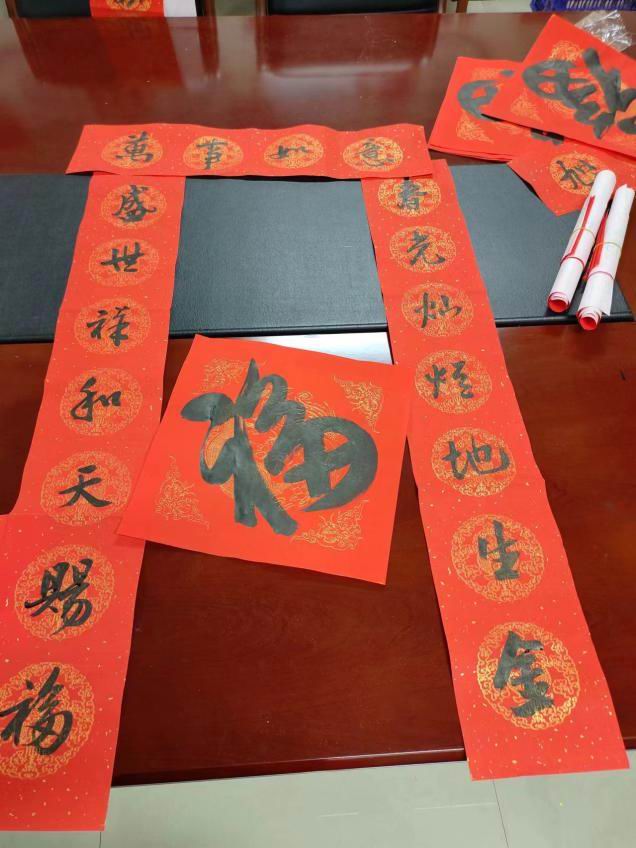 萬事如意
盛世祥和天賜福
春光灿烂地生金
福